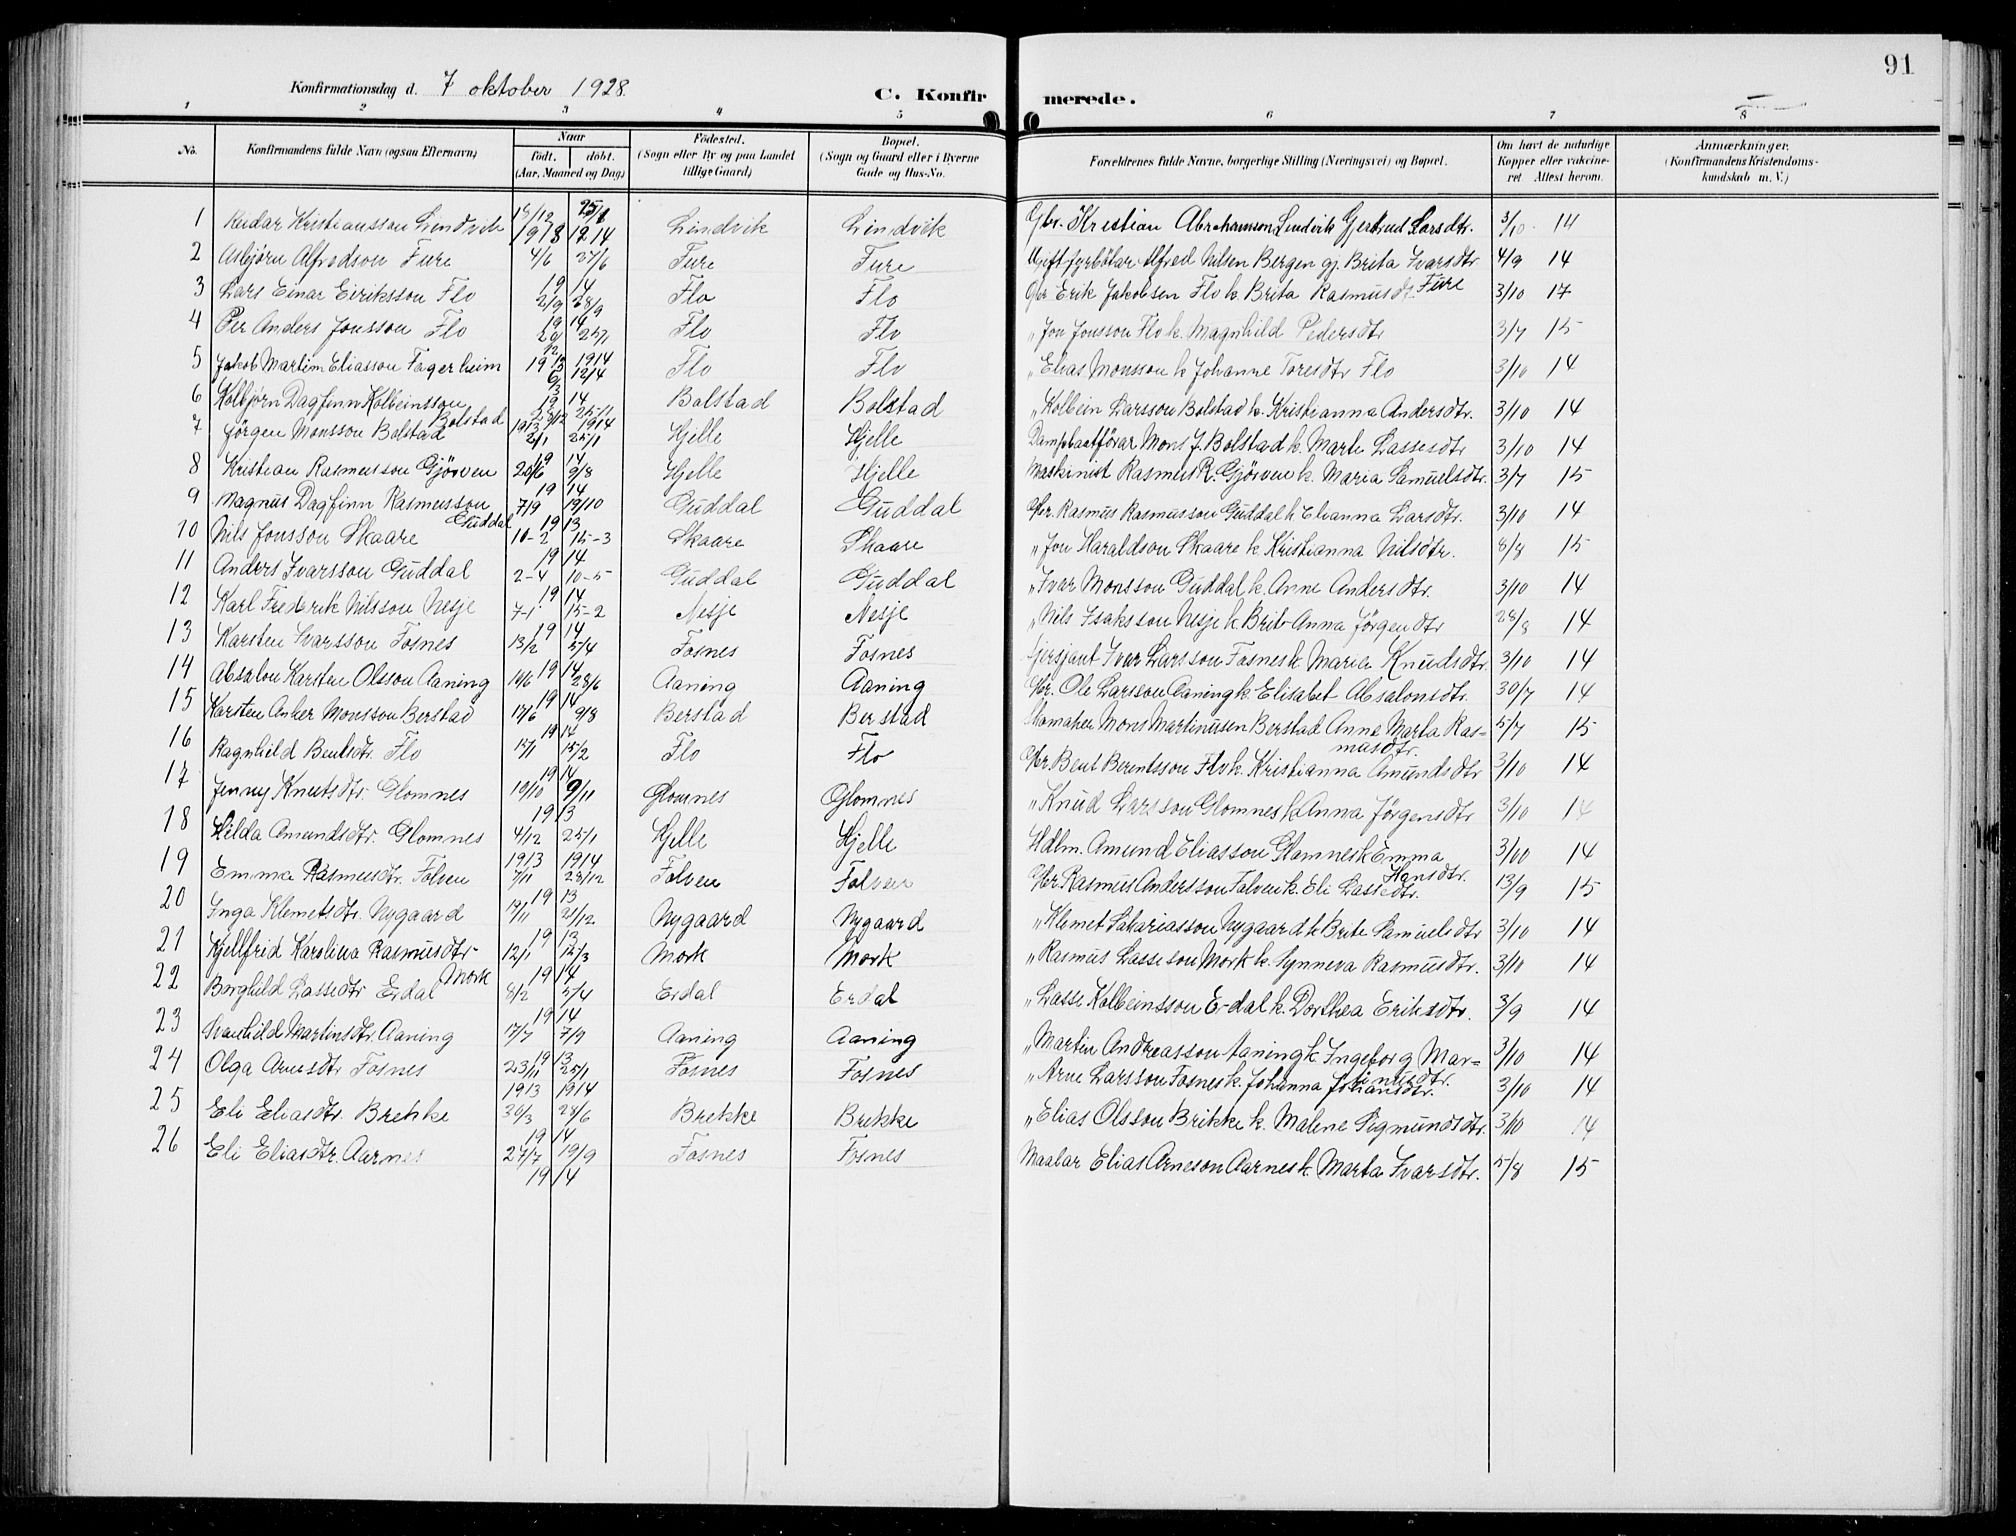 91
Konfirmationsdag d. 7 oktober 1928.
C. Konfirmerede.
1 2 3 4 5 6 7 8
No.
Konfirmandens fulde Navn (ogsaa Efternavn)
Naar
födt. döbt.
(Aar, Maaned og Dag)
Födested.
(Sogn eller By og paa Landet
tillige Gaard)
Bopæl.
(Sogn og Gaard eller i Byerne
Gade og Hus-No.
Forældrenes fulde Navne, borgerlige Stilling (Næringsvei) og Bopæl.
Om havt de naturlige
Kopper eller vakcine-
ret. Attest herom.
Anmærkninger.
(Konfirmandens Kristendoms-
kundskab m. V.)
1 Reidar Kristiansson Lindvik Lindvik Lindvik Gbr. Kristian Abrahamson Lindvik Gjertrud Larsdtr. 3/10 14
2 Asbjörn Alfredson Fure 4/6 27/6 Fure Fure Ugift fyrbötar Alfred Nilsen Bergen gj. Brita Ivarsdtr Fure 4/9 14
19 14
3 Lars Einar Eiriksson Flo 2/9 28/9 Flo Flo Gbr Erik Jakobsen Flo k. Brita Rasmusdtr. 3/10 17
19 14
4 Per Anders Jonsson Flo Flo Flo " Jon Jonsson Flo k. Magnhild Pedersdtr 3/7 15
5 Jakob Martin Eliasson Fagerheim Flo Flo " Elias Monsson k Johanne Toresdtr Flo 3/10 14
6 Kolbjörn Dagfinn Kolbeinsson Bolstad Bolstad Bolstad " Kolbein Larsson Bolstad k. Kristianna Andersdtr. 3/10 14
1913 1914
7 Jörgen Monsson Bolstad 2/1 25/1 Hjelle Hjelle Dampbaatförar Mons J. Bolstad k. Marte Lassesdtr 3/10 14
19 14
8 Kristian Rasmusson Gjörven 20/6 9/8 Hjelle Hjelle Maskinist Rasmus R. Gjörven k. Maria Samuelsdtr. 3/7 15
19 14
9 Magnus Dagfinn Rasmusson Guddal 7/9 19/10 Guddal Guddal Gbr. Rasmus Rasmusson Guddal k. Elianna Larsdtr. 3/10 14
19 13
10 Nils Jonsson Skaare 10-2 15-3 Skaare Skaare " Jon Haraldson Skaare k Kristianna Nilsdtr. 8/8 15
19 14
11 Anders Ivarsson Guddal 2-4 10-5 Guddal Guddal " Ivar Monsson Guddal k. Anne Andersdtr. 3/10 14
19 14
12 Karl Frederik Nilsson Nesje 7-1 15-2 Nesje Nesje " Nils Isaksson Nesje k Brit-Anna Jörgendtr 28/8 14
19 14
13 Karsten Ivarsson Fosnes 13/2 5/4 Fosnes Fosnes Sjersjant Ivar Larsson Fosnes k. Maria Knudsdtr. 3/10 14
19 14
14 Absalon Karsten Olsson Aaning 14/6 28/6 Aaning Aaning Gbr. Ole Larsson Aaning k. Elisabet Absalonsdtr. 30/7 14
19 14
15 Karsten Anker Monsson Berstad 17/6 9/8 Berstad Berstad Skomaker Mons Martinusen Berstad Anne Marta Ras-
masdtr. 5/7 15
19 14
16 Ragnhild Bentsdtr. Flo 15/1 15/2 Flo Flo Gbr. Bent Berentsson Flo k. Kristianna Amundsdtr 3/10 14
19 14
17 Jenny Knutsdtr. Glomnes 10/10 9/11 Glomnes Glomnes " Knud Larsson Glomnes k Anna Jörgensdtr 3/10 14
19 13
18 Hilda Amundsdtr. Glomnes 4/12 25/1 Hjelle Hjelle Hdlm. Amund Eliasson Glomnes k Emma Hansdtr. 14
1913 1914
19 Emma Rasmusdtr. Folven 7/11 28/12 Folven Folven Gbr. Rasmus Andersson Folven k. Eli Lassedtr. 13/9 15
19 13
20 Inga Klemetsdtr. Nygaard 21/12 Nygaard Nygaard " Klemet Sakariasson Nygaard k Brite Samuelsdtr 3/10 14
19 13
21 Kjellfrid Karolina Rasmusdtr Mork 12/1 12/3 Mork Mork " Rasmus Lasseson Mork k. Synneva Rasmusdtr. 3/10 14
19 14
22 Borghild Lassedtr Erdal 8/2 5/4 Erdal Erdal " Lasse Kolbeinsson Erdal k. Dorthea Eriksdtr. 3/9 14
19 14
23 Svanhild Martinsdtr. Aaning 17/7 7/9 Aaning Aaning " Martin Andreasson Aaning k Ingeborg Mar-
tinusdtr. 3/10 14
19 13
24 Olga Arnesdtr Fosnes 23/11 25/1 Fosnes Fosnes " Arne Larsson Fosnes k. Johanna Johansdtr. 3/10 14
1913 1914
25 Eli Eliasdtr. Brekke 30/3 28/6 Brekke Brekke " Elias Olsson Brikke k. Malene Sigmundsdtr. 3/10 14
19 14
26 Eli Eliasdtr. Aarnes 27/7 19/9 Fosnes Fosnes Maalar Elias Arneson Aarnes k. Marta Ivarsdtr. 5/8 15
19 14